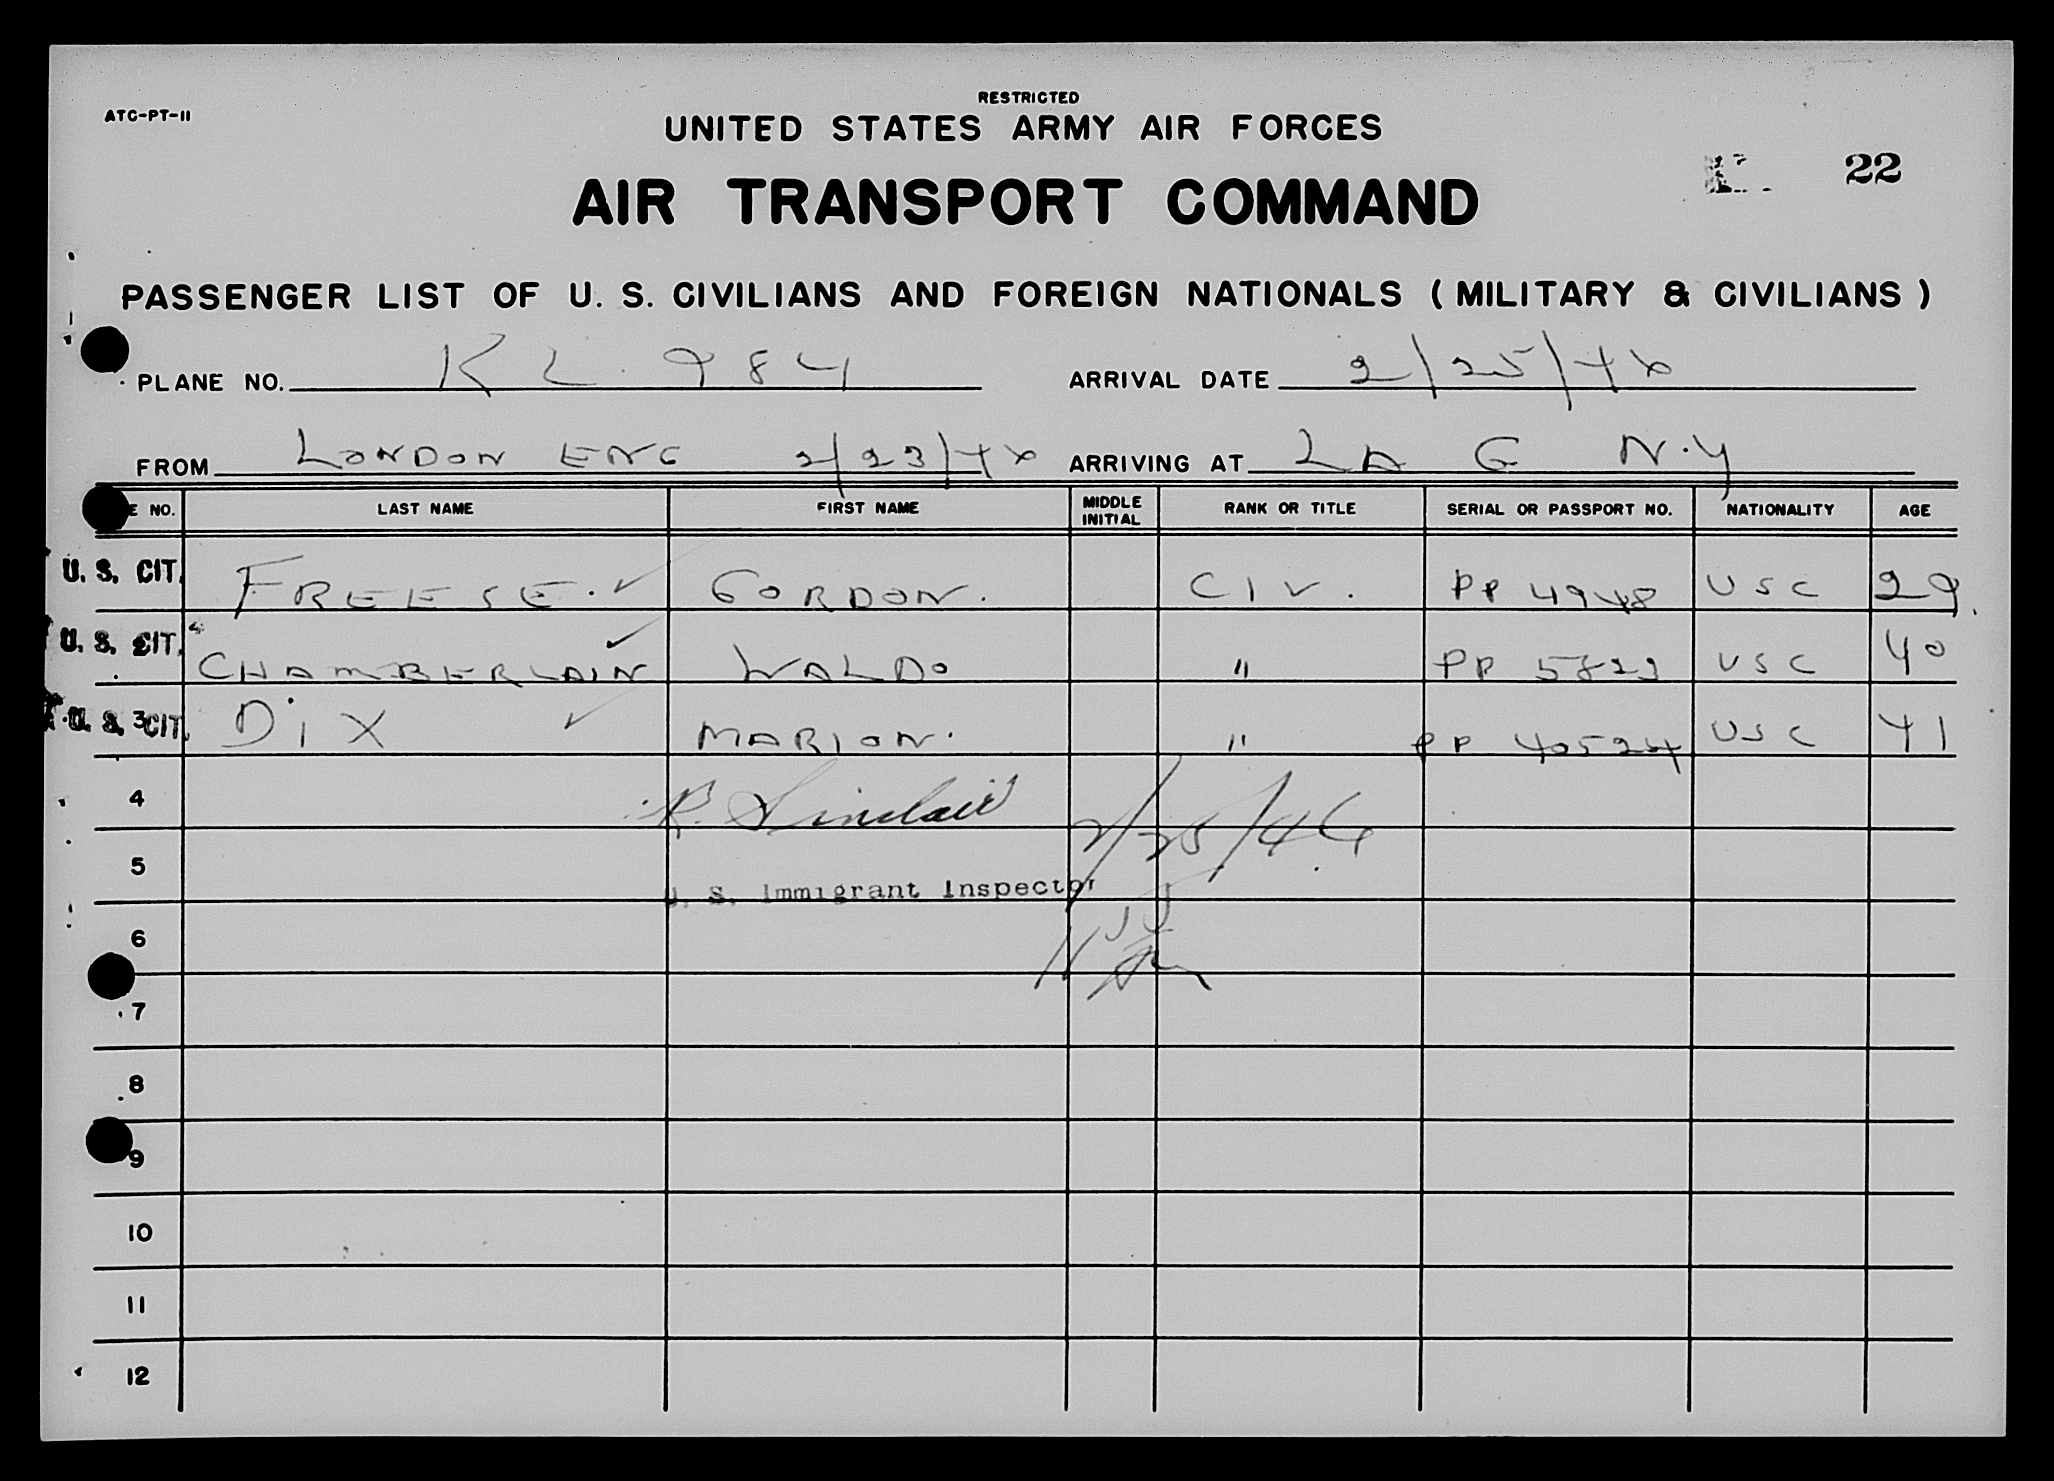 RESTRICTED
ATC-PT-11
UNITED STATES ARMY AIR FORCES
22
AIR TRANSPORT COMMAND
PASSENGER LIST OF U. S. CIVILIANS AND FOREIGN NATIONALS ( MILITARY & CIVILIANS )
PLANE NO. KL. 984 ARRIVAL DATE 2/25/46
FROM LONDON ENG 2/23/46 ARRIVING AT LA G N.Y
E NO. LAST NAME FIRST NAME MIDDLE INITIAL RANK OR TITLE SERIAL OR PASSPORT NO. NATIONALITY AGE
U. S. CIT. FREESE. ✓ GORDON. CIV. PP 4948 USC 29.
U. S. CIT. CHAMBERLAIN ✓ WALDO " PP 5823 USC 40
U. S. 3 CIT. DIX ✓ MARION. " PP 40524 USC 41
4 R. Sinclair
2/25/46
5
U. S. Immigrant Inspector
6
7
8
9
10
11
12